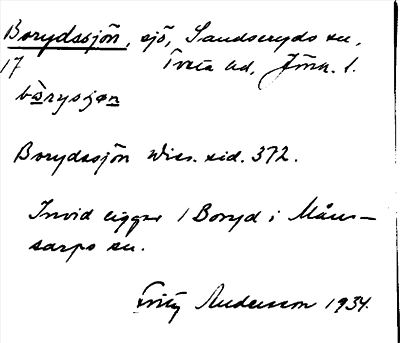 Borydssjön, sjö, Sandseryds sn,
17 Tveta hd, Jönk. l.
bòrysjøn
Borydssjön Wies. sid. 372.
Invid ligger 1 Boryd i Måns-
sarps sn.
Fritz Andersson 1934.